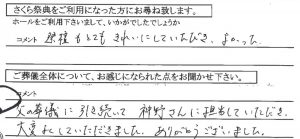 さくら祭典をご利用になった方にお尋ね致します。
ホールをご利用下さいまして、いかがでしたでしょうか
コメント
もとても きれいにしていただき、よかった
ご葬儀全体について、お感じになられた点をお聞かせ下さい。
コメント
父の葬儀に引き続いて 神野さんに担当していただき、
大変お世話になりました。ありがとうございました。